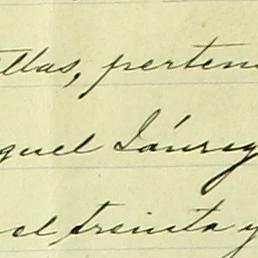 llas, perten
guel Iáureg
el treinta y